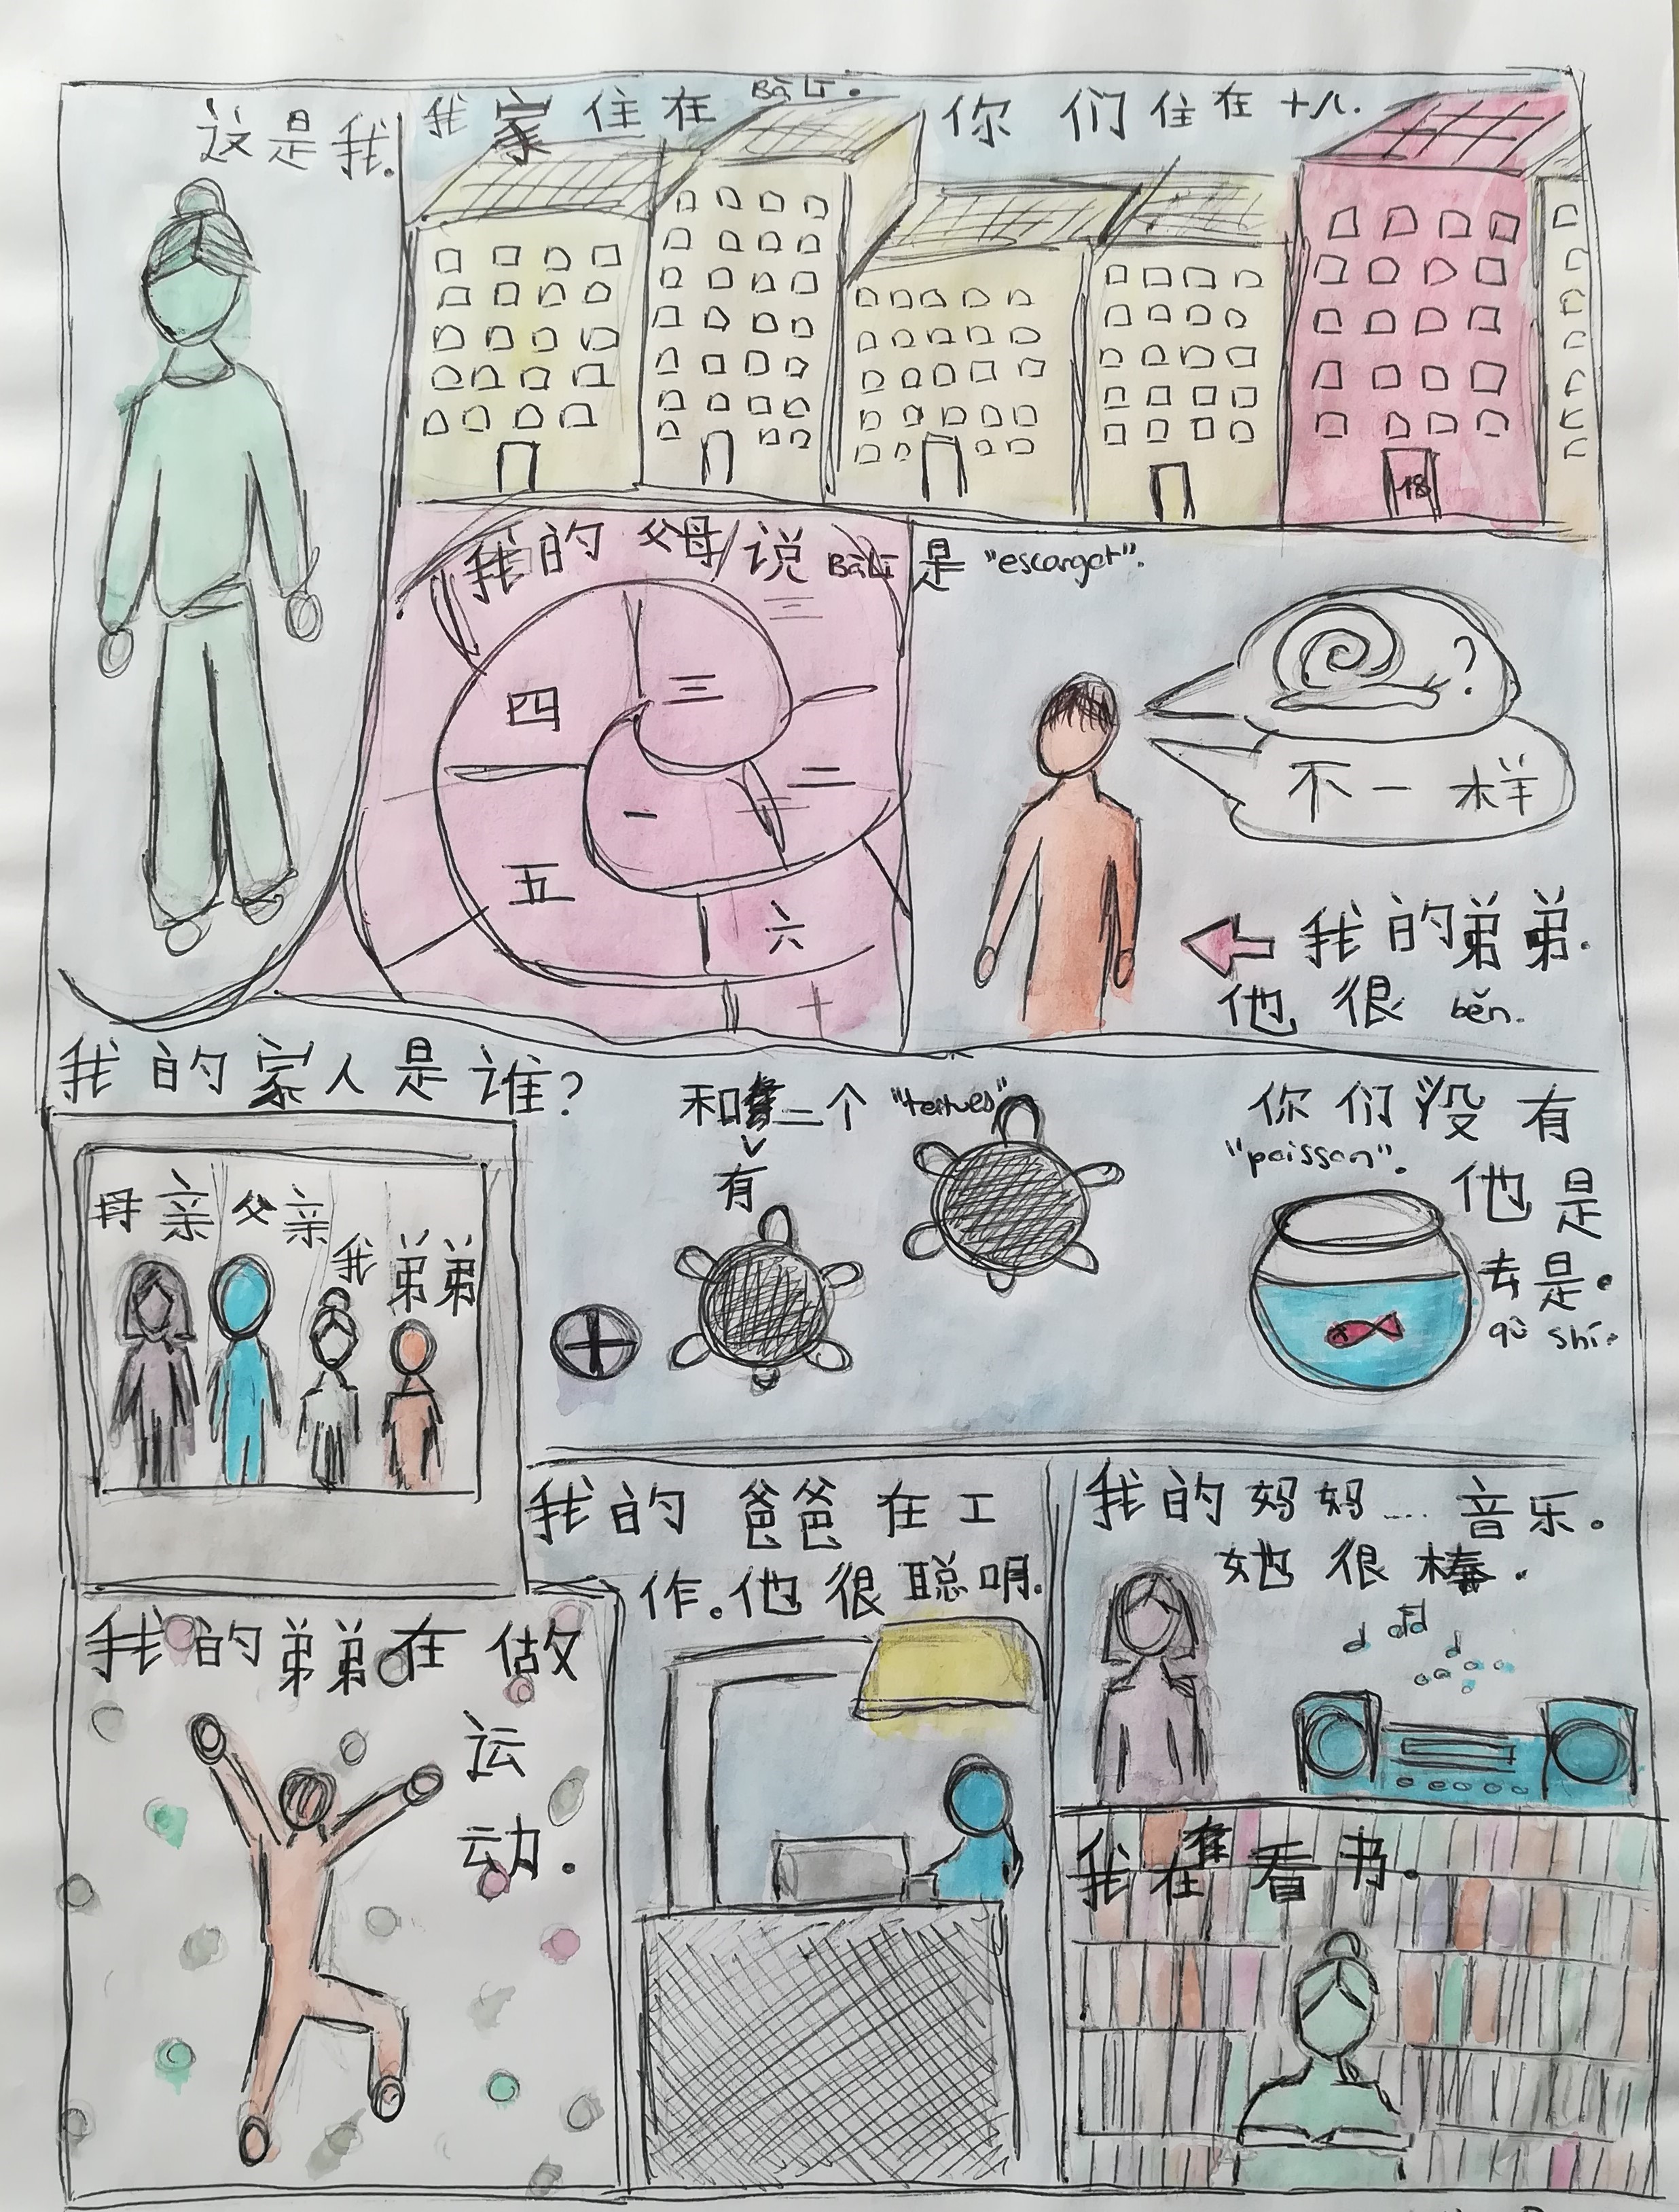 这是我.
我家住在 Bālí.
你们住在十八.
18
我的父母说 Bālí 是 "escargot".
三
四
二
一
五
六
十
?
不一样
我的弟弟.
他很 běn.
我的家人是谁?
母亲
父亲
我
弟弟
和 二个 "tortues"
有
你们没有
"poisson".
他是
去是.
qù shí.
我的爸爸在工
作.他很聪明.
我的妈妈.... 音乐.
她很棒.
我的弟弟在做
运
动.
我在看书.